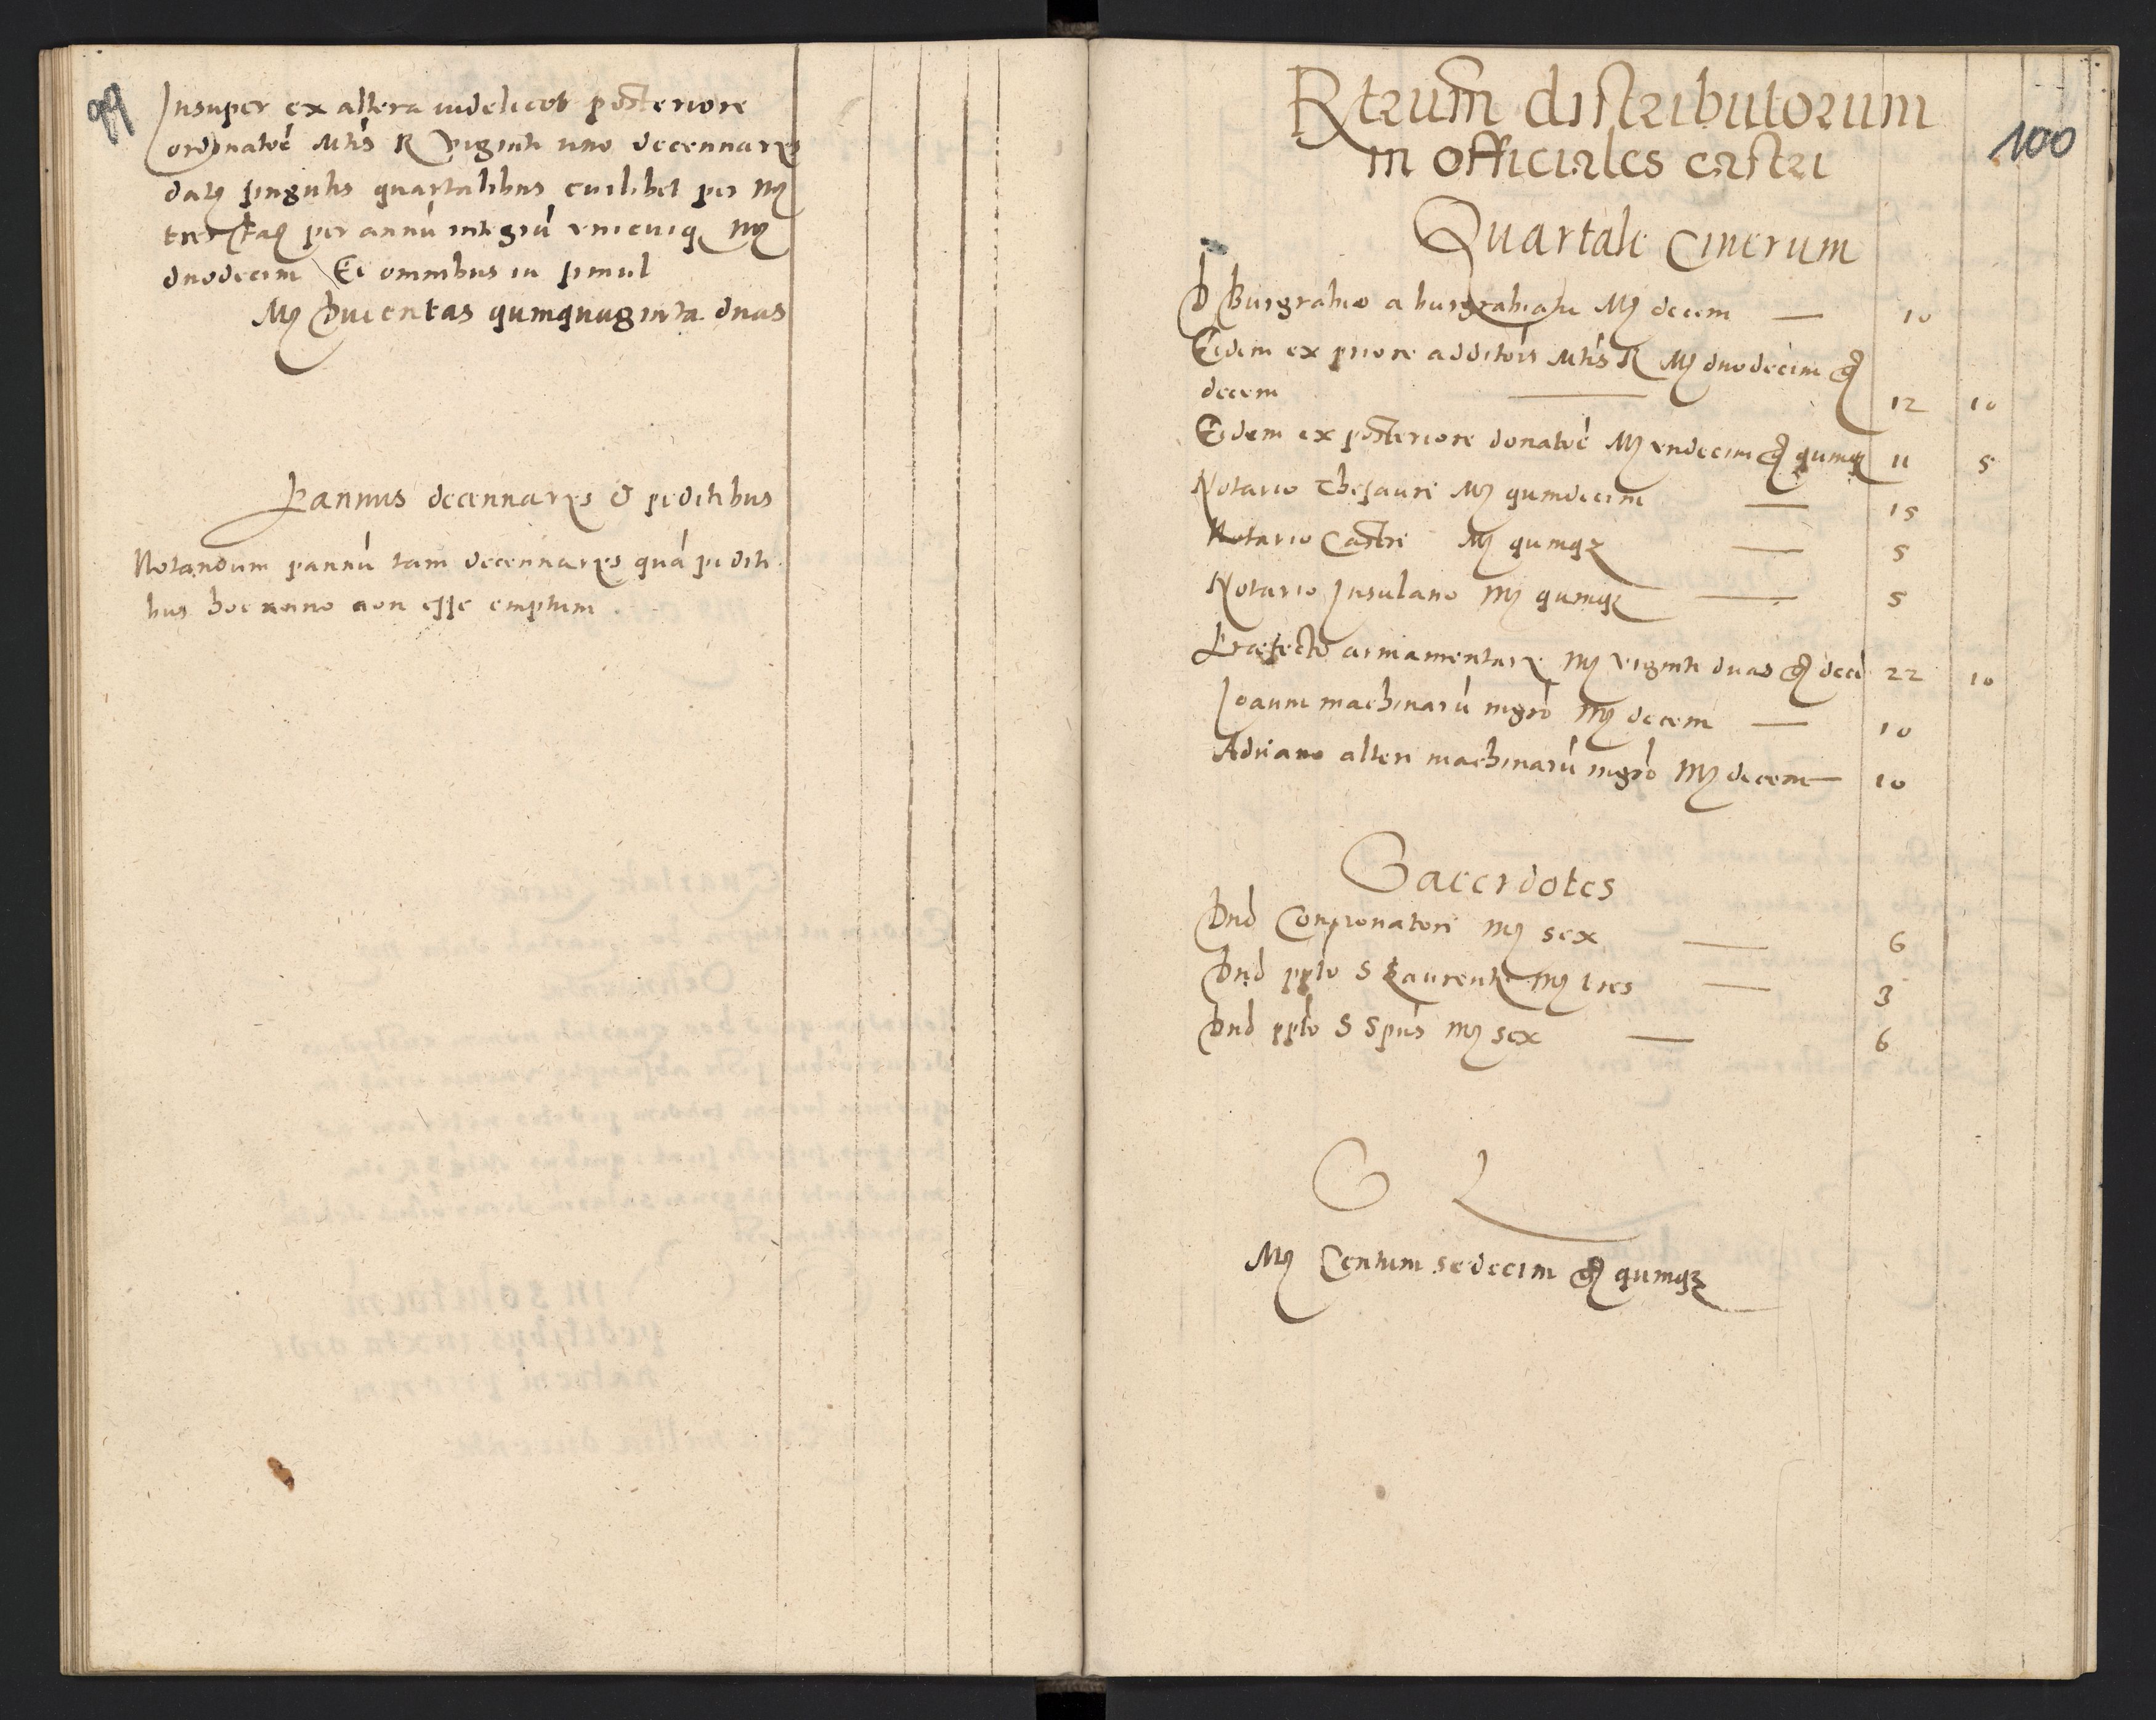 99
Insuper ex altera videlicet posteriore
ordinatōē Mtis R viginti uno decennariis
datȝ singulis quartalibus cuilibet per Mȝ
tres facȝ per annū integrū unicuiqȝ Mȝ
duodecim Et omnibus in simul
Mȝ Ducentas quinquaginta duas
Pannus decennariis & peditibus
Notandum pannū tam decennariis quā pediti
bus hoc anno non esse emptum .
100
Rtrum distributorum
in officiales castri
Quartale Cinerum
D Burgrabio a burgrabiatu Mȝ decem — 10
Eidem ex priore additōis Mtis R Mȝ duodecim gȝ
decem — 12 10
Eidem ex posteriore donatōē Mȝ undecim gȝ quinqȝ 11 5
Notario Thesauri Mȝ quindecim — 15
Notario Castri Mȝ quinqȝ — 5
Notario Insulano Mȝ quinqȝ — 5
Præfecto armamentarii Mȝ viginti duas gȝ decē 22 10
Joanni machinarū mgrō Mȝ decem — 10
Adriano alteri machinarū mgrō Mȝ decem — 10
Sacerdotes
Dnō Concionatori Mȝ sex — 6
Dnō pplō S Laurentii Mȝ tres — 3
Dnō pplō S Spūs Mȝ sex — 6
S L
Mȝ Centum sedecim gȝ quinqȝ